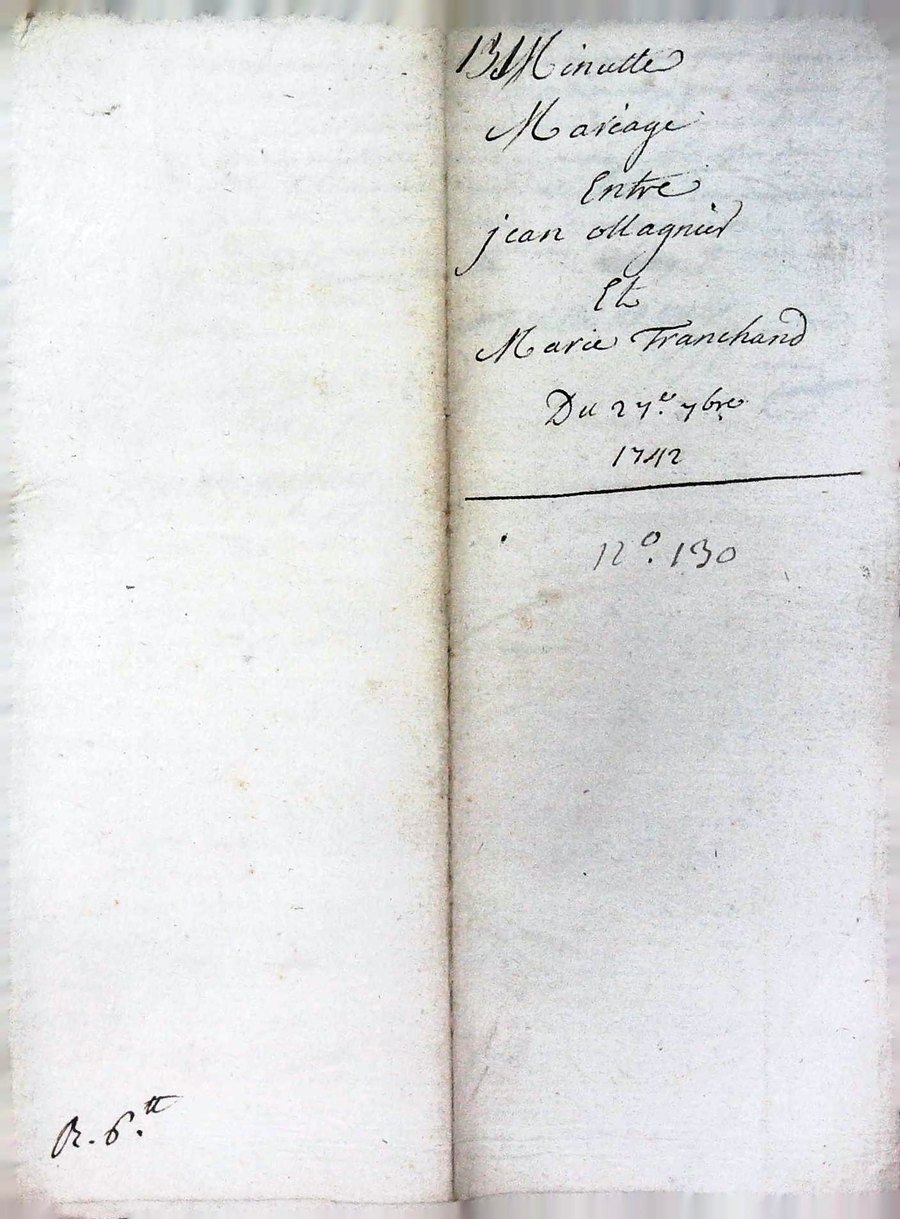 131 Minutte
Mariage
Entre
jean ollagnier
Et
Marie Tranchand
Du 27.e 7bre
1742
N.o 130
R. 6.tt